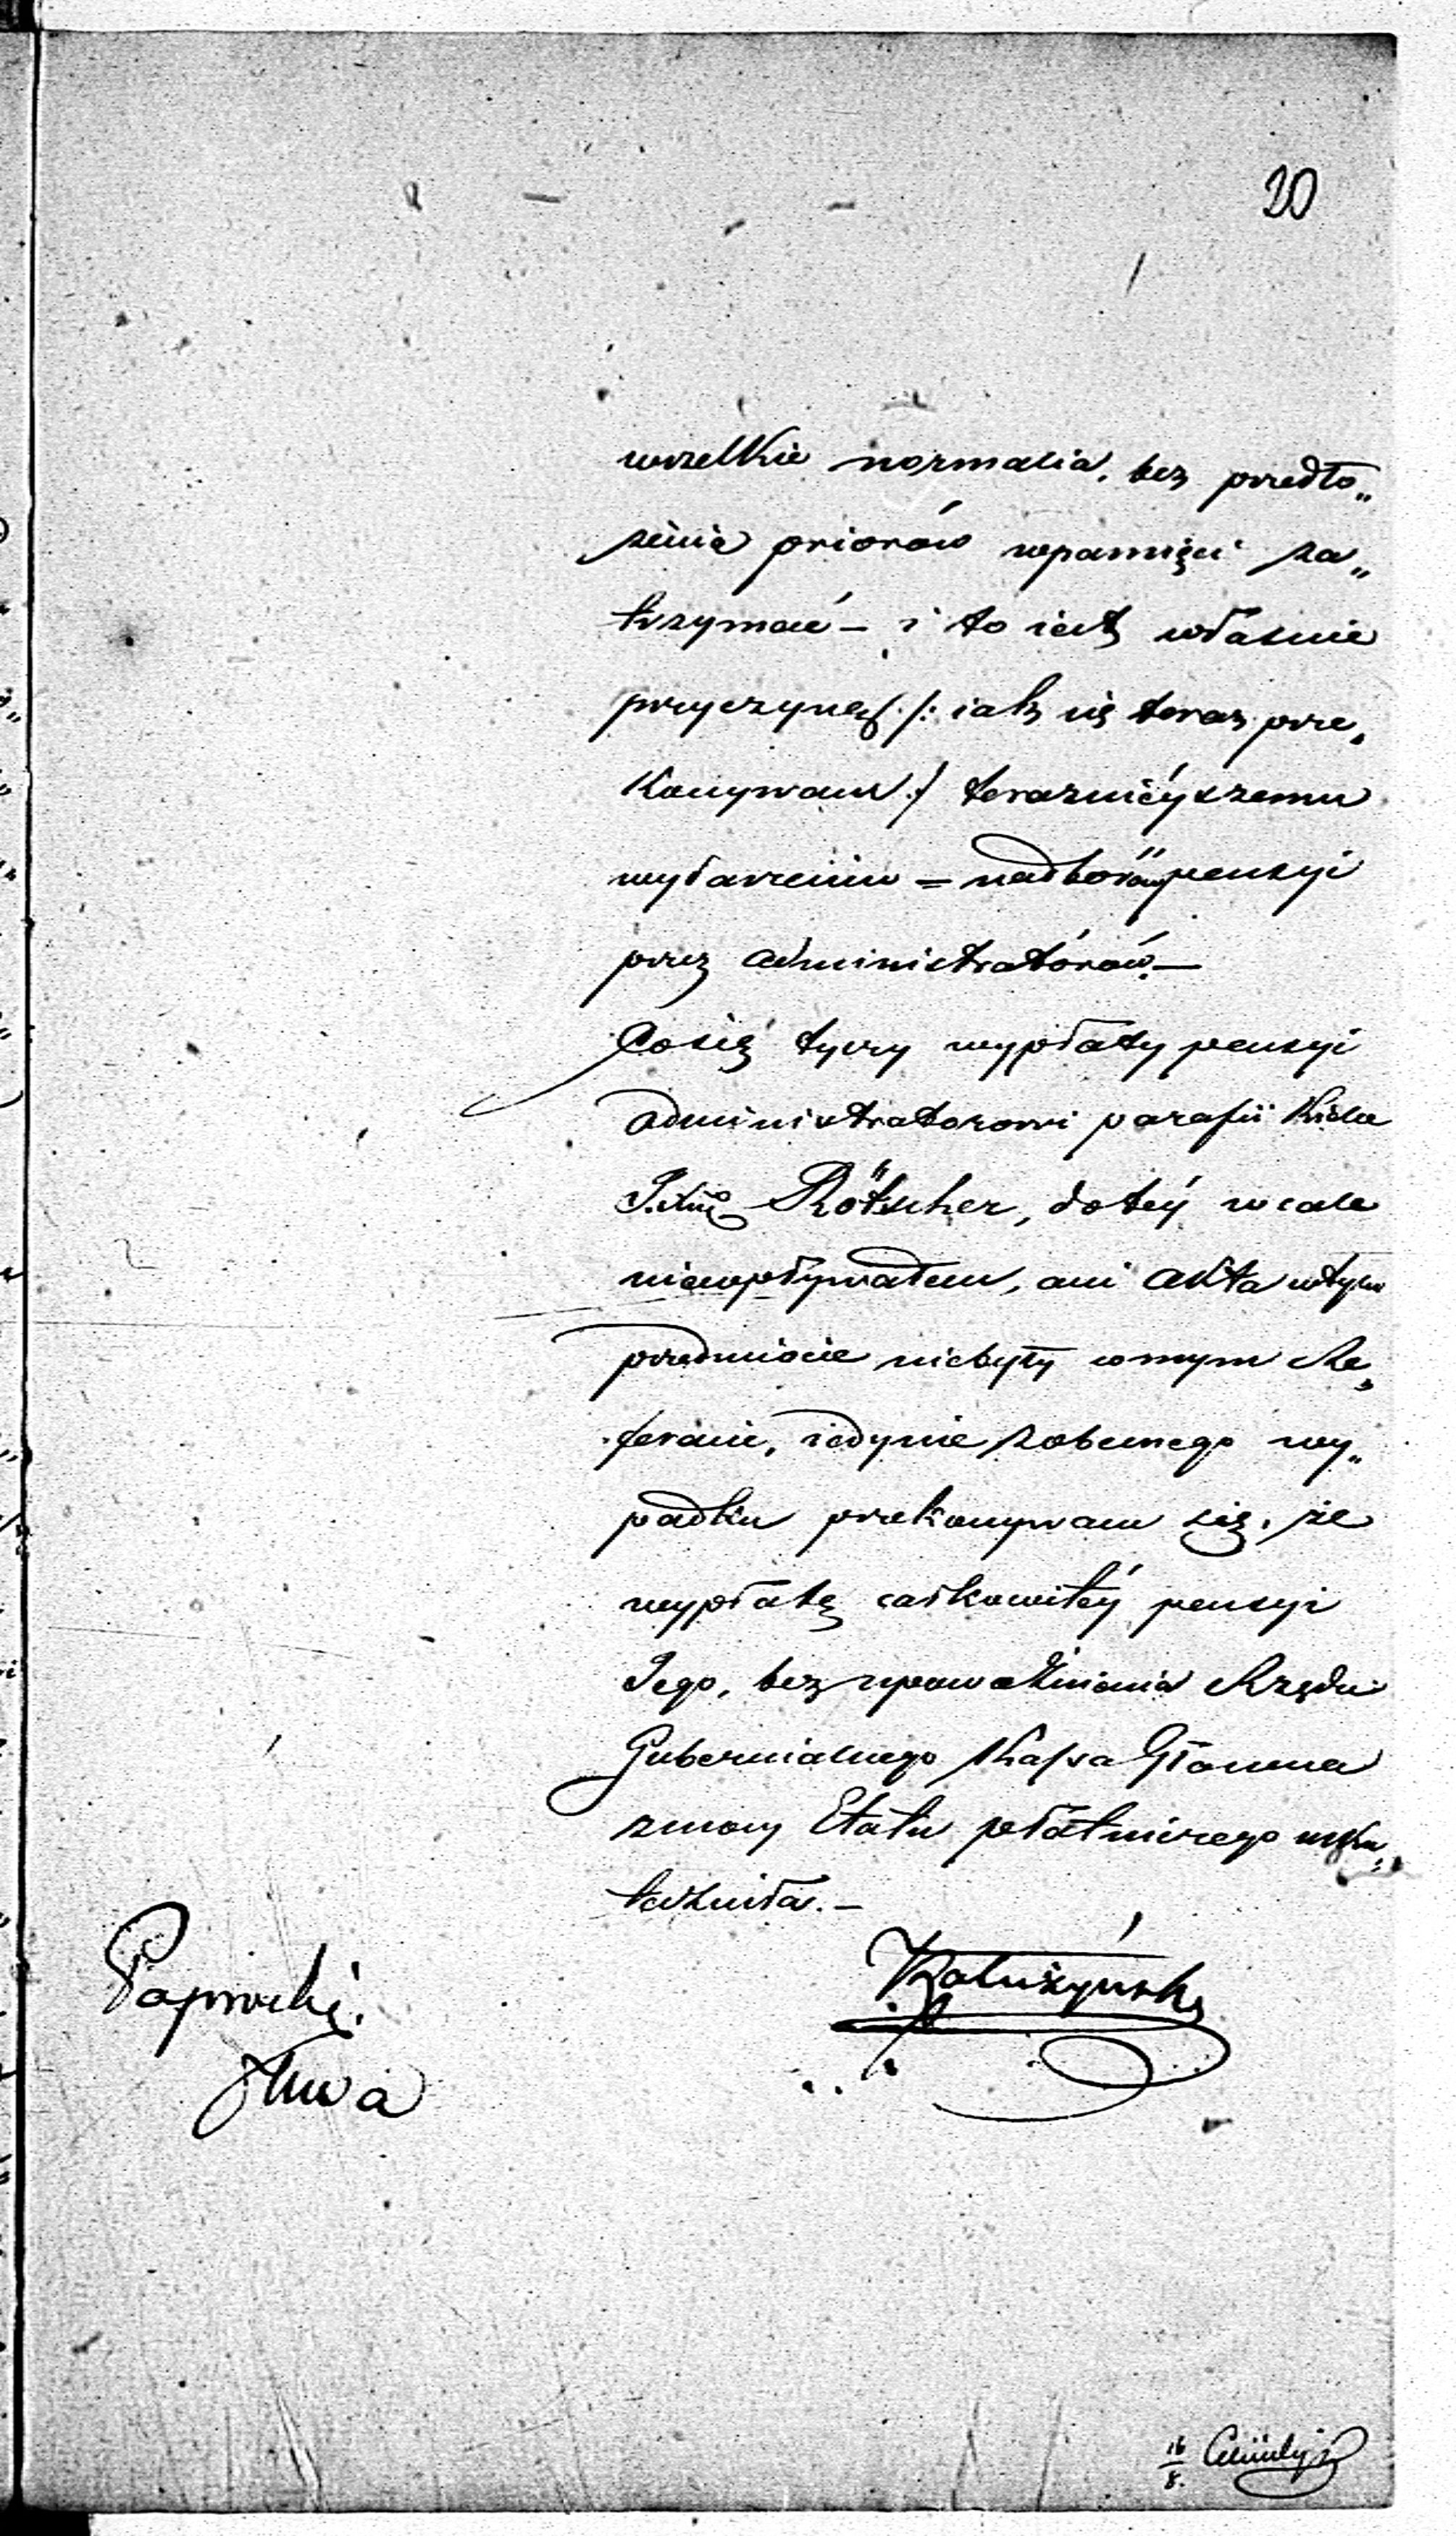 20
wszelkie normalia, bez przedło„
żenia priorów wpamięci za„
trzymać – i to iest właśnie
przyczyną /: iak się teraz prze„
konywam :/ teraznieyszemu
wydarzeniu = nadborów pensyi
przez administratórów. –
Cosię tyczy wypłaty pensyi
administratorowi parafii
Rötscher, dotéy wcale
niewpływałem, ani akta wtym
przedmiocie niebyły wmym Re„
feracie, iedynie zobecnego wy„
padku przekonywam się, że
wypłatę całkowitéy pensyi
Jego, bez upoważnienia Rządu
Gubernialnego Kassa Główna
zmocy Etatu płatniczego usku„
teczniła. –
Kałużyński
Paprocki
16/8.